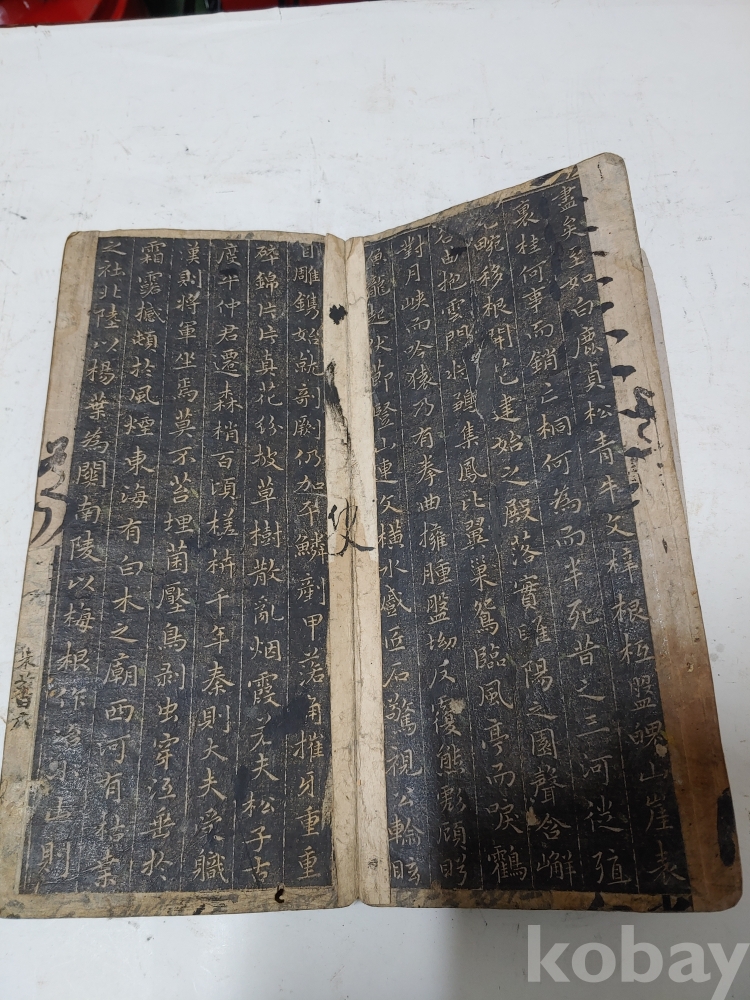 盡矣至如白鹿貞松青牛文梓根柢盤魄山崖表
裏桂何事而銷亡桐何為而半死昔之三河徙殖
九畹移根開花建始之殿落實睢陽之園聲含嶰
谷曲抱雲門将雛集鳳比翼巢鴛臨風亭而唳鶴
對月峽而吟猿乃有拳曲擁腫盤坳反覆熊彪顧盼
魚龍起伏節豎山連文橫水蹙匠石驚視公輪眩
目雕鐫始就剞劂仍加平鱗剷甲落角摧牙重重
碎錦片片真花紛披草樹散亂烟霞若夫松子古
度平仲君遷森梢百頃槎枿千年秦則大夫受職
漢則將軍坐焉莫不苔埋菌壓鳥剥虫穿垂於
霜露撼頓於風煙東海有白木之廟西河有枯桒
之社北陸以楊葉為關南陵以梅根作冶小山則
kobay